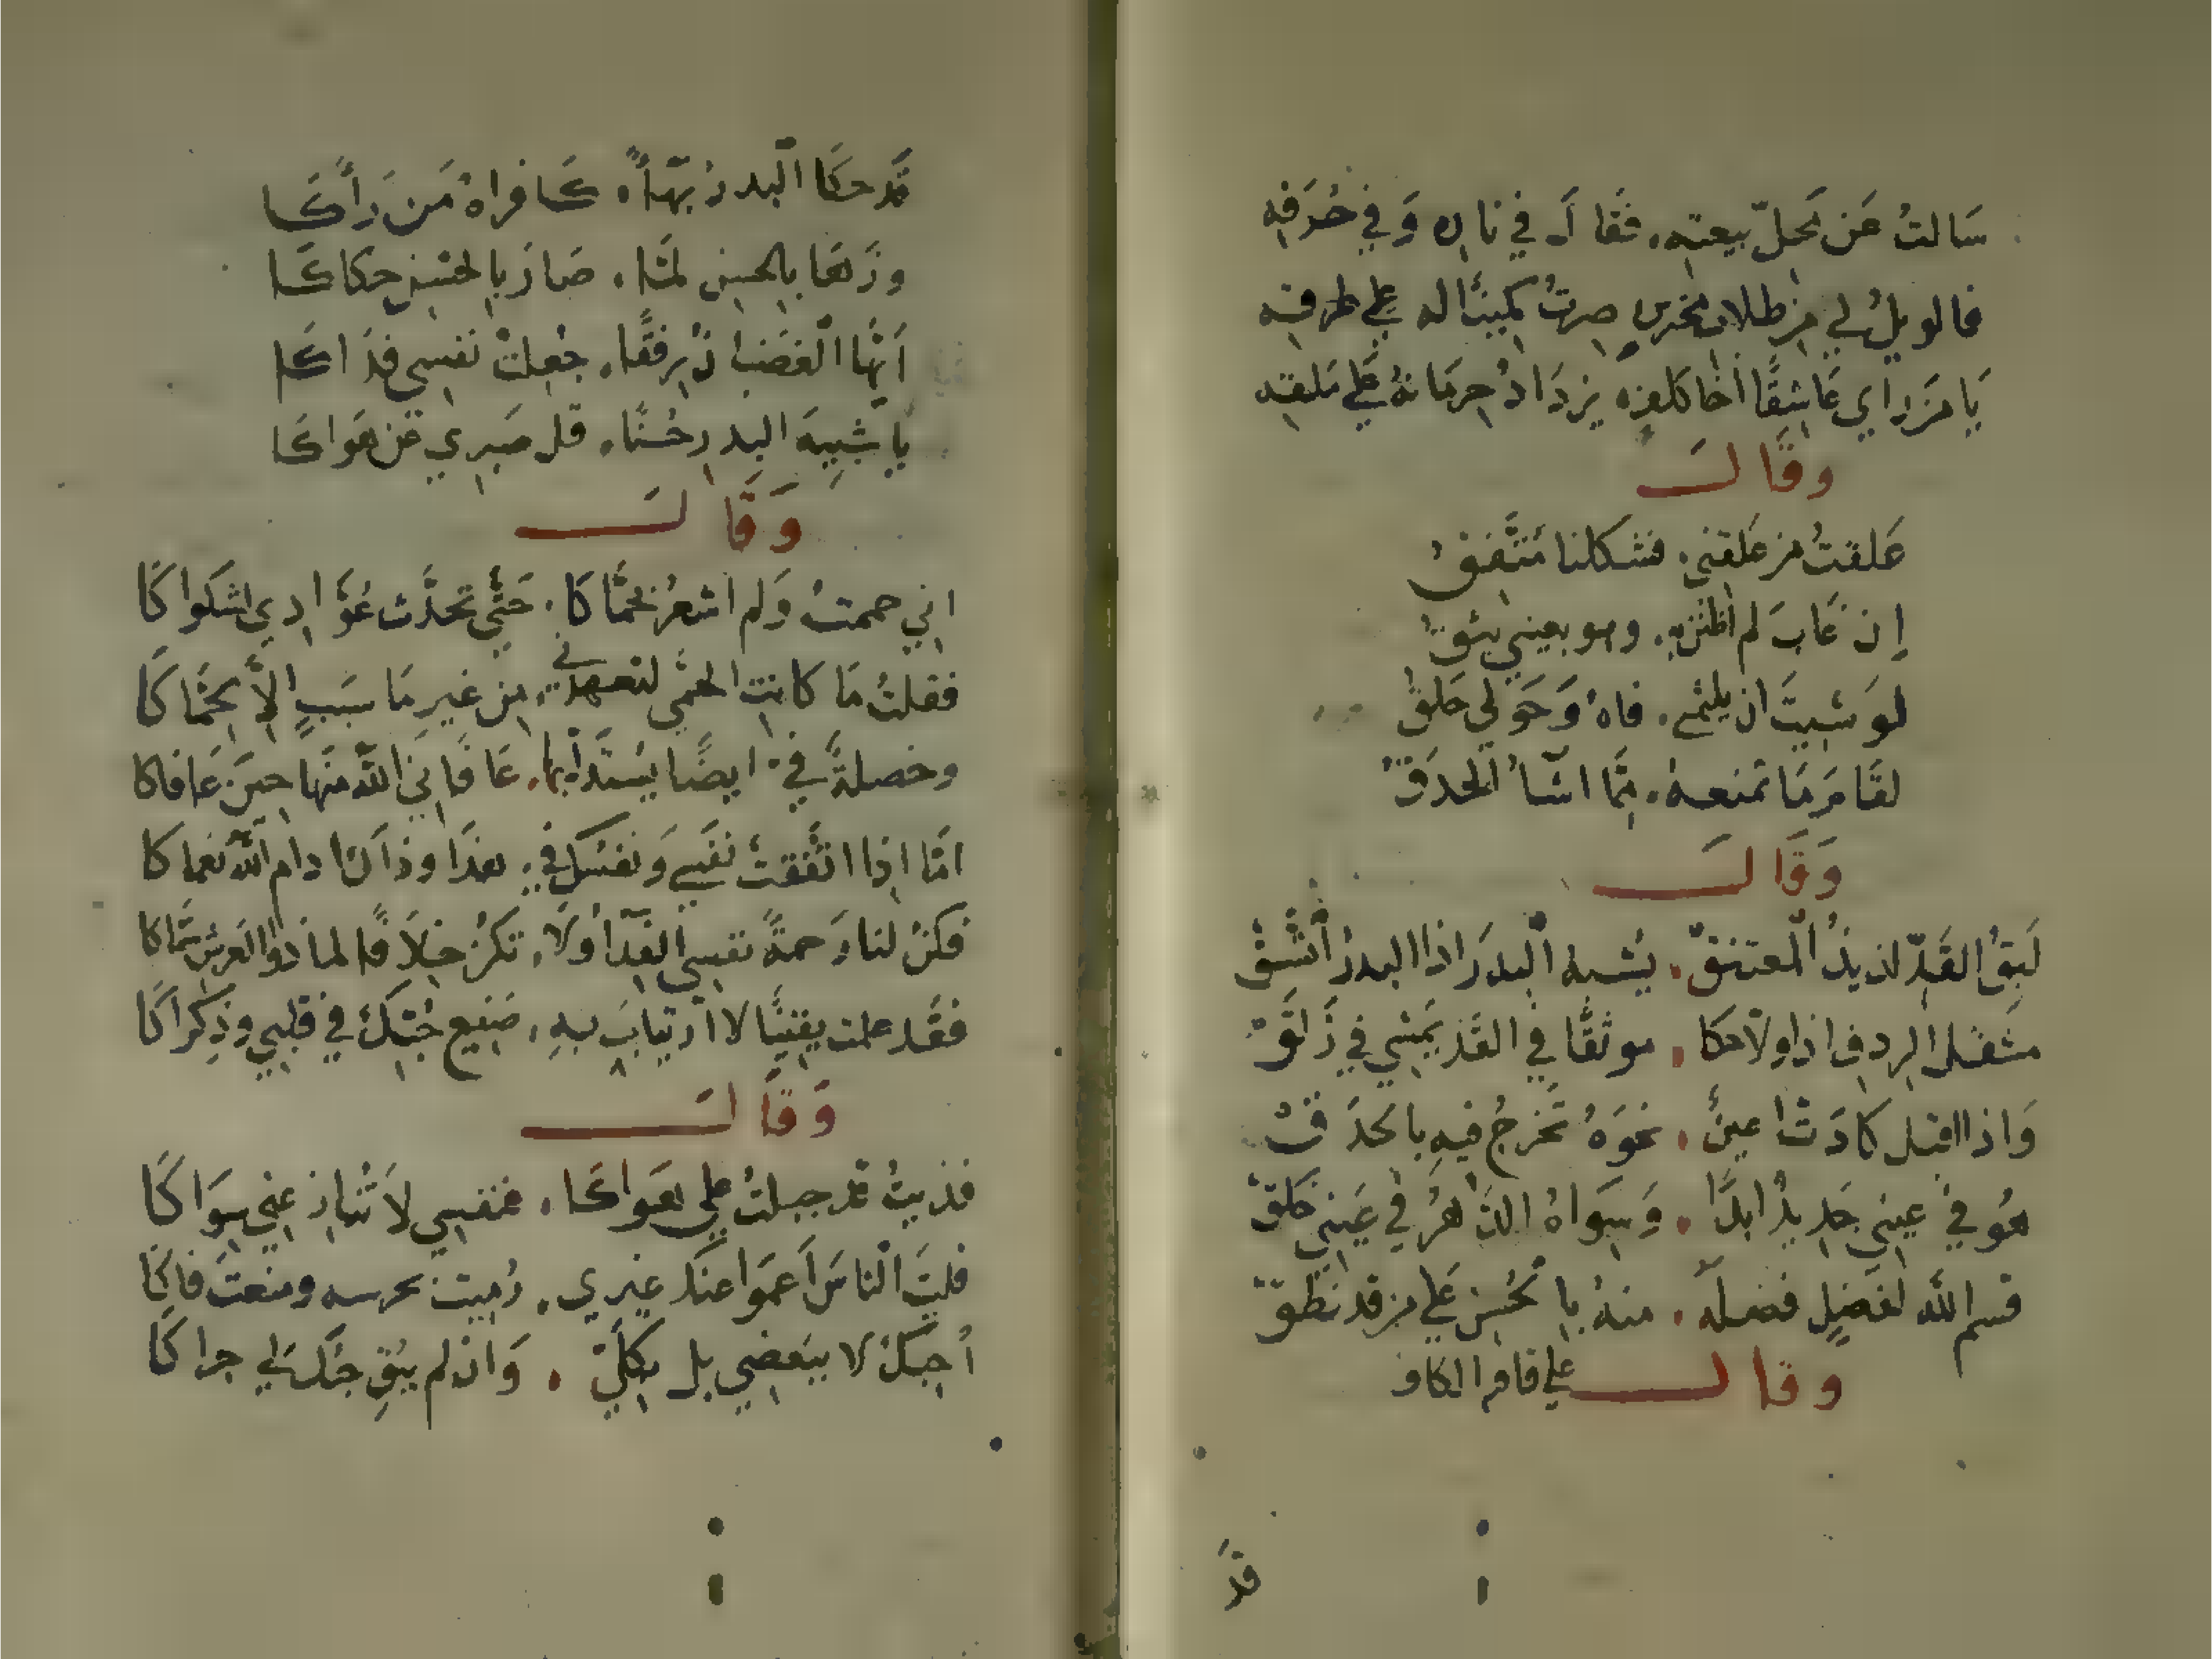 سَالتُ عَن مَحلّ بيعتِه. فقَالَ في نارِه وَفي حُرَقِه
فالويلُ لي من صرتُ له علي طرقه
يَا مَن راي عَاشِقًا اخَا كلفٍ. يزدَادُ حرمَانهُ عَلي مَلقه
وقَالَ
عَلقتُ من عَلقني. فشكلنا مُتَّفِقُ
إن غَابَ لم اظنن به. وهو بعيني يثقُ
لو شيتَ ان يلثمني. فاهُ وَحَولي حَلقُ
لقَامَ مَا تمنعهُ. ممَّا اشَاءُ الحدَقُ
وَقَالَ
لَبِقُ القَدِّ لذيذُ المعتنقْ. يُشبه البدرَ اذا البدرُ اتّسَقْ
مثقل الردف اذا ولّا حكا. موثقًا في القدّ يَمشي في زَلَقْ
وَاذا اقبل كادَت اعينٌ. نحوَهُ تَخرجُ فيهِ بالحدَقْ
هُو في عيني جَديدٌ ابدًا. وَسِوَاهُ الدَّهْرُ في عَيني خَلَقْ
قسم الله لفضلٍ فضله. منهُ بالحُسنِ عَلي من قد نطقْ
وقال علي قافية الكاف
قَد
قَد حَكَا البدرُ بهَاءً. كَافراهُ مَن رَأَكَا
وزَهَا بالحسنِ لمَّا. صَارَ بالحُسنِ حكاكَا
أَيُّهَا الغضبانُ رِفقًا. جُعِلتْ نفسِي فدَاكَا
يَا شبِيهَ البدرِ حُسنًا. قل صَبري عَن هَوَاكَا
وَقَالَ
اني حممتُ وَلم اشعُرْ بحُمَّاكَا. حَتَّي تحدَّث عُوَّادِي بشكوَاكَا
فقلتُ مَا كانتِ الحُمَّي لتعهدني. مِن غيرِ مَا سَبَبٍ إلاَّ بحُمَّاكَا
وخصلةٌ فيّ ايضًا يُسْتدَلُّ بها. عَافَانِيَ الله منهَا حِينَ عَافاكا
امَّا اذا اتَّفقتْ نفسِي وَنفسُك في. هذَا وذاك ادام الله نعماكا
فكنْ لنا رَحمةً نفسِي الفدَاءُ ولَا. تكنْ خِلاَفًا لما ذو العَرشِ سَمَّاكا
فقَد علمت يقينًا لا ارتيابَ بهِ. صَنيع حُبّكَ في قلبي وذِكرَاكَا
وَقَالَ
فدَيتُ قد جبلتُ علي هَوَاكَا. فنفسِي لاَ تُنازعني سِوَاكَا
فليتَ الناسَ اَعمَوا عنكَ غيرِي.
اُحِبُّكَ لا ببَعضِي بل بكلِّي. وَان لم يُبقِ حُبُّكَ لي حراكَا